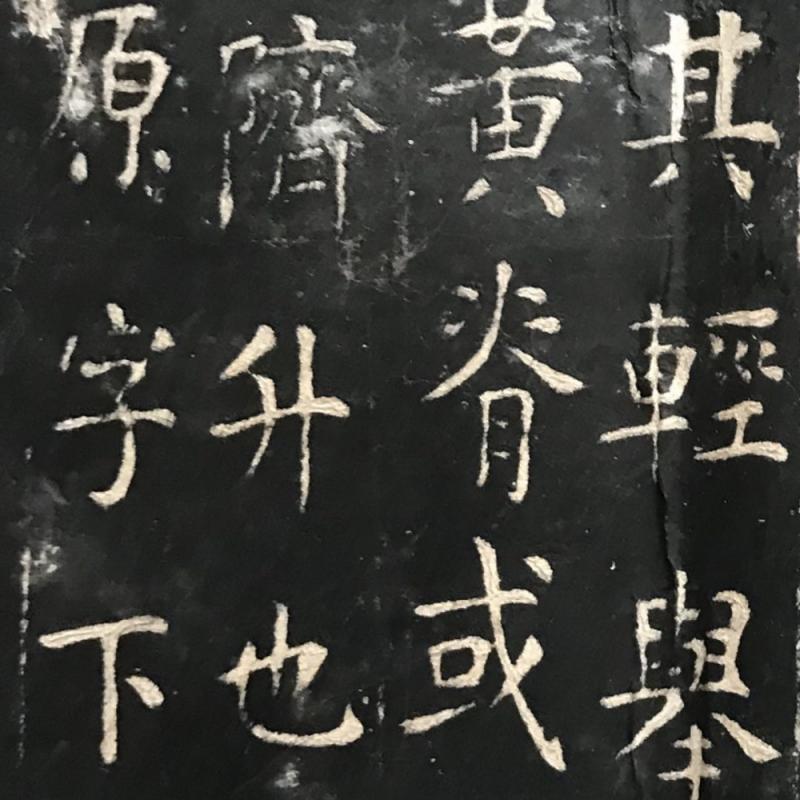 其輕舉
黃脊或
隮升也
原字下